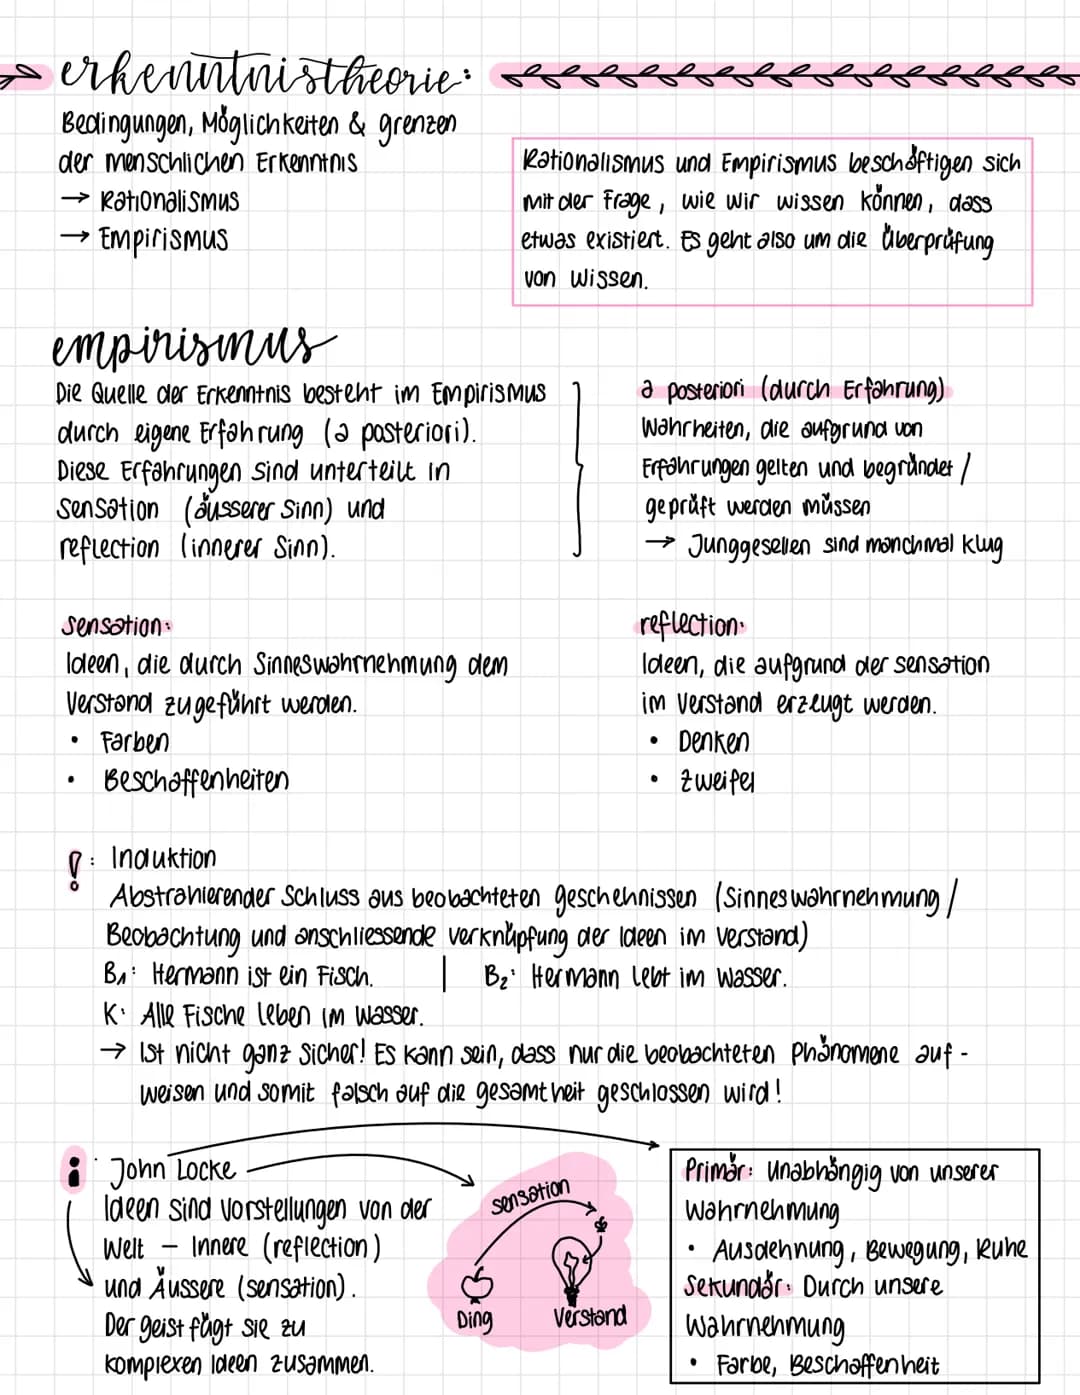 erkenntnistheorie:
Bedingungen, Möglichkeiten & grenzen
der menschlichen Erkenntnis
→ Rationalismus
→ Empirismus
Rationalismus und Empirismus beschäftigen sich
mit der Frage, wie wir wissen können, dass
etwas existiert. Es geht also um die Überprüfung
von Wissen.
empirismus
Die Quelle der Erkenntnis besteht im Empirismus
durch eigene Erfahrung (a posteriori).
Diese Erfahrungen sind unterteilt in
sensation (äusserer Sinn) und
reflection (innerer Sinn).
a posteriori (durch Erfahrung)
Wahrheiten, die aufgrund von
Erfahrungen gelten und begründet /
geprüft werden müssen
→ Junggesellen sind manchmal klug
sensation:
Ideen, die durch Sinneswahrnehmung dem
Verstand zugeführt werden.
• Farben
• Beschaffenheiten
reflection:
Ideen, die aufgrund der sensation
im Verstand erzeugt werden.
• Denken
• Zweifel
!: Induktion
Abstrahierender Schluss aus beobachteten geschehnissen (Sinneswahrnehmung /
Beobachtung und anschliessende verknüpfung der Ideen im Verstand)
B1: Hermann ist ein Fisch. | B2: Hermann lebt im Wasser.
K: Alle Fische leben im Wasser.
→ Ist nicht ganz sicher! Es kann sein, dass nur die beobachteten Phänomene auf-
weisen und somit falsch auf die gesamtheit geschlossen wird!
i: John Locke
Ideen sind Vorstellungen von der
Welt – Innere (reflection)
und Äussere (sensation).
Der geist fügt sie zu
komplexen Ideen zusammen.
sensation
Ding
Verstand
Primär: Unabhängig von unserer
Wahrnehmung
• Ausdehnung, Bewegung, Ruhe
Sekundär: Durch unsere
Wahrnehmung
• Farbe, Beschaffenheit